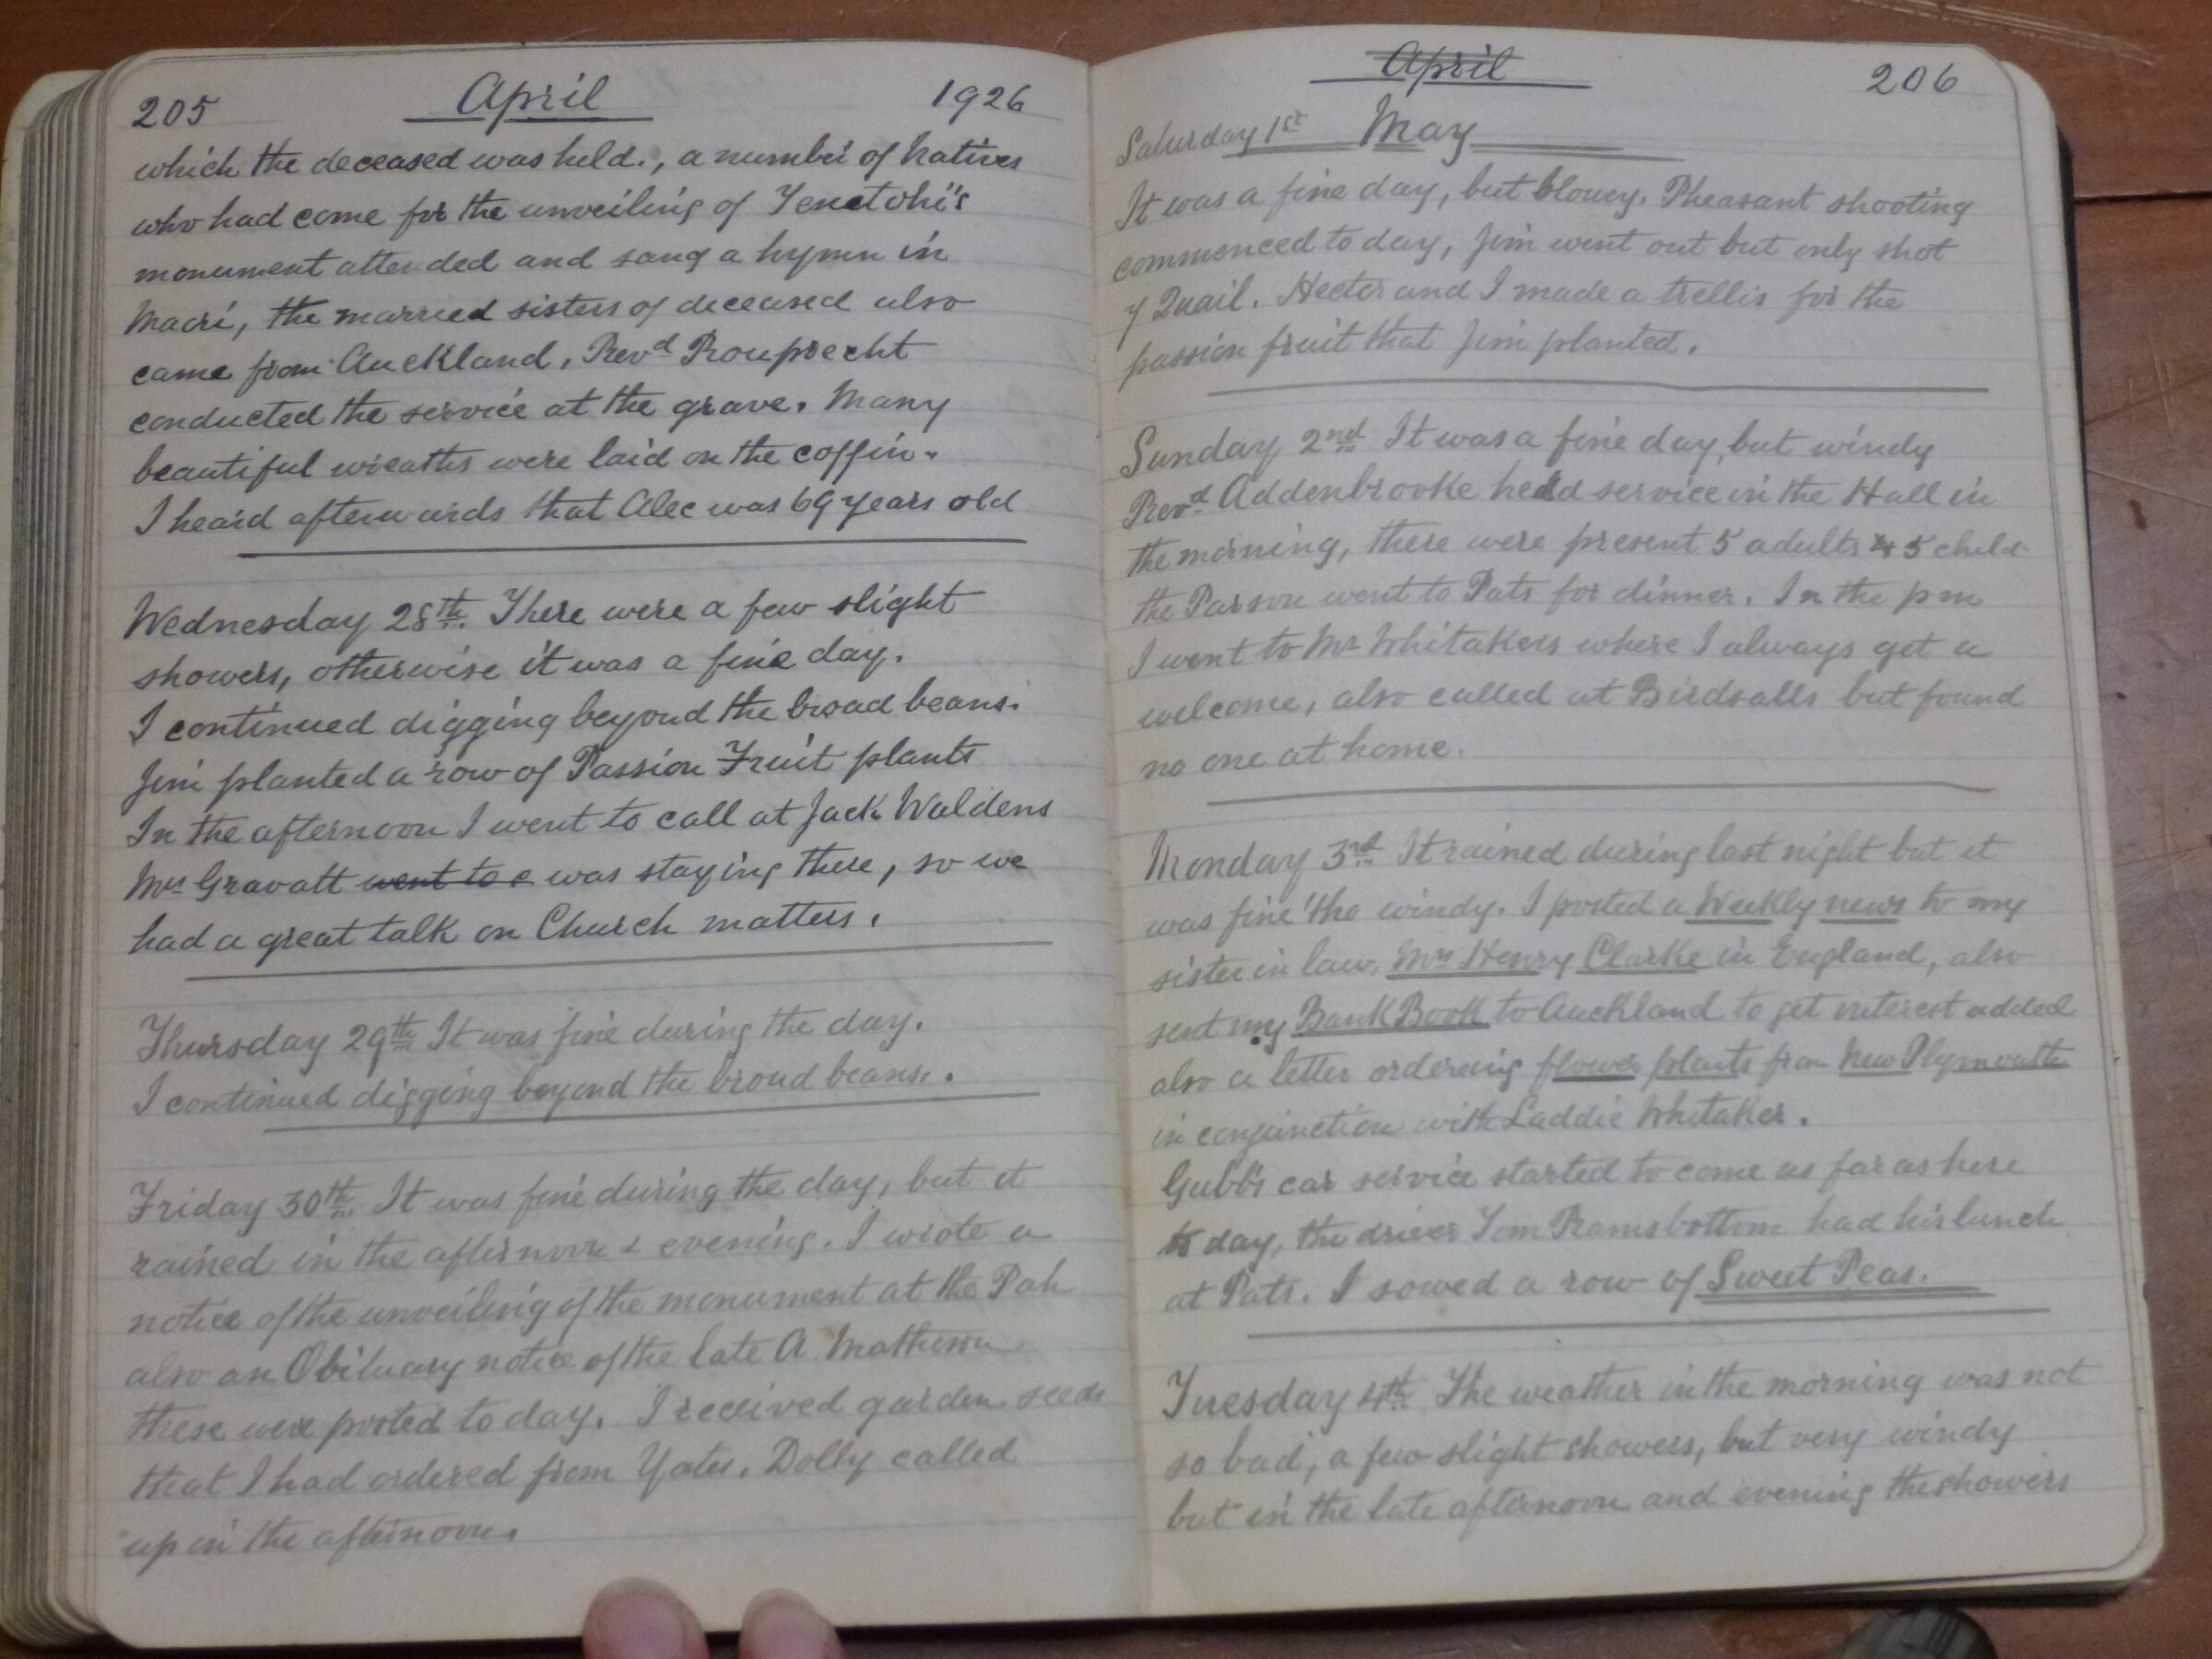 205 April 1926
which the deceased was held., a number of Natives
who had come for the unveiling of Tenetohi's
monument attended and sang a hymn in
Maori, the married sisters of deceased also
came from Auckland, Revd Rouprecht
conducted the service at the grave. Many
beautiful wreaths were laid on the coffin.
I heard afterwards that Alec was 69 years old
Wednesday 28th. There were a few slight
showers, otherwise it was a fine day.
I continued digging beyond the broad beans.
Jim planted a row of Passion Fruit plants
In the afternoon I went to call at Jack Waldens
Mrs Gravatt went to c was staying there, so we
had a great talk on Church matters.
Thursday 29th It was fine during the day.
I continued digging beyond the broad beans.
Friday 30th. It was fine during the day, but it
rained in the afternoon & evening. I wrote a
notice of the unveiling of the monument at the Pah
also an Obituary notice of the late A. Matheson
these were posted to day. I received garden seeds
that I had ordered from Yates. Dolly called
up in the afternoon.
April 206
Saturday 1st May
It was a fine day, but blowy. Pheasant shooting
commenced to day, Jim went out but only shot
7 Quail. Hector and I made a trellis for the
passion fruit that Jim planted.
Sunday 2nd It was a fine day, but windy
Revd Addenbrooke held service in the Hall in
the morning, there were present 5 adults & 5 child
the Parson went to Pats for dinner. In the pm
I went to Mr Whitakers where I always get a
welcome, also called at Birdsalls but found
no one at home.
Monday 3rd It rained during last night but it
was fine 'tho windy. I posted a Weekly news to my
sister in law, Mrs Henry Clarke in England, also
sent my Bank Book to Auckland to get interest added
also a letter ordering flower plants from New Plymouth
in conjunction with Laddie Whitaker.
Gubb's car service started to come as far as here
to day, the driver Tom Ramsbottom had his lunch
at Pats. I sowed a row of Sweet Peas.
Tuesday 4th The weather in the morning was not
so bad, a few slight showers, but very windy
but in the late afternoon and evening the showers